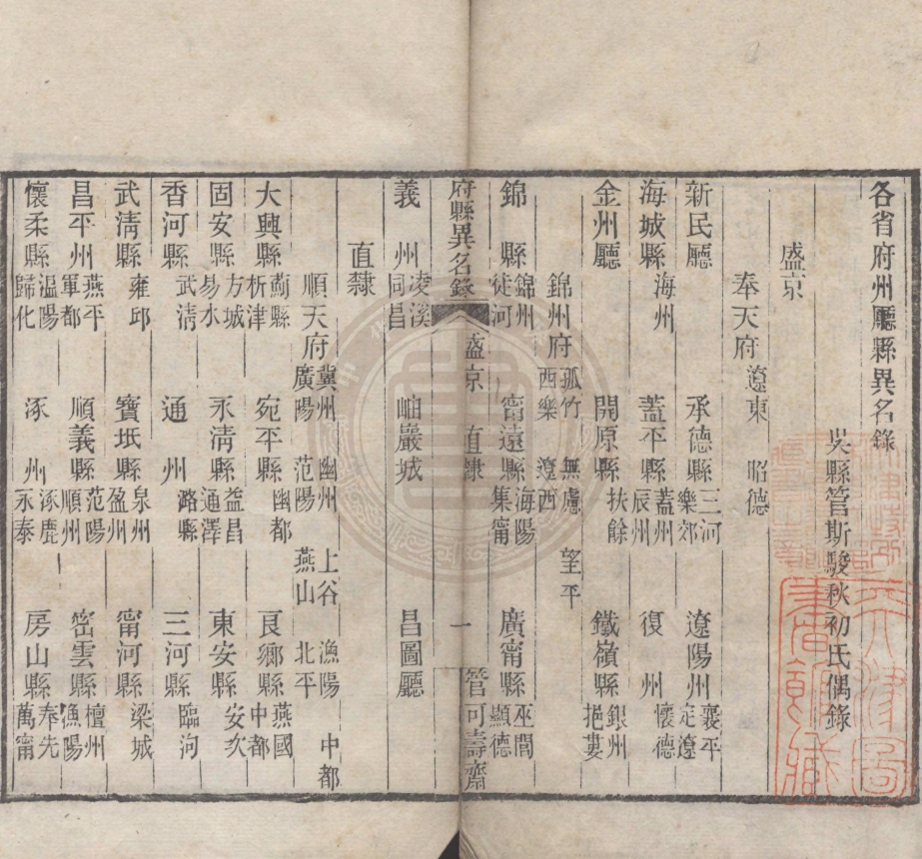 各省府州廳縣異名錄
吳縣管斯駿秋初氏偶錄
盛京
奉天府 遼東 昭德
新民廳 承德縣 三河 樂郊 遼陽州 襄平 定遼
海城縣 海州 蓋平縣 蓋州 辰州 復州 懷德
金州廳 開原縣 扶餘 鐵嶺縣 銀州 挹婁
錦州府 孤竹 無慮 望平 西樂 遼西
錦縣 錦州 徒河 甯遠縣 海陽 集甯 廣甯縣 巫閭 顯德
府縣異名錄 盛京 直隸 一 管可壽齋
義州 凌溪 同昌 岫巖城 昌圖廳
直隸
順天府 冀州 幽州 上谷 漁陽 中都 廣陽 范陽 燕山 北平
大興縣 薊縣 析津 宛平縣 幽都 良鄉縣 燕國 中都
固安縣 方城 易水 永清縣 益昌 通澤 東安縣 安次
香河縣 武清 通州 潞縣 三河縣 臨泃
武清縣 雍邱 寶坻縣 泉州 盈州 甯河縣 梁城
昌平州 燕平 軍都 順義縣 范陽 順州 密雲縣 檀州 漁陽
懷柔縣 溫陽 歸化 涿州 涿鹿 永泰 房山縣 奉先 萬甯